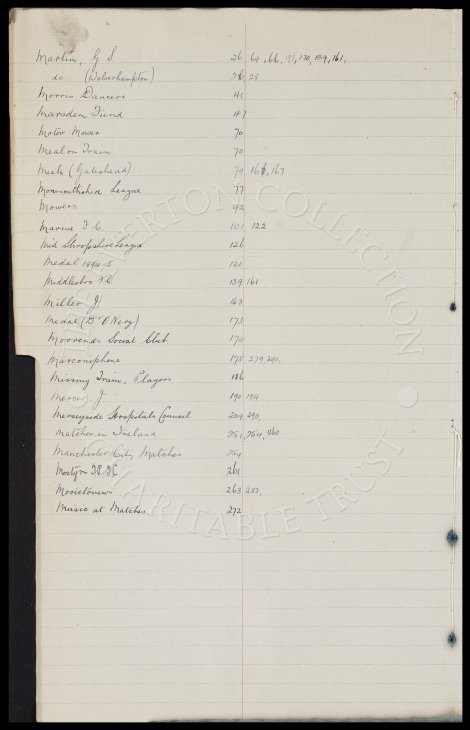 Martin, G S 26 64, 66, 91, 130, 159, 161,
do (Wolverhampton) 26, 28
Morris Dancers 41
Marsden Fund 47
Motor Mower 70
Meal on Train 70
Meek (Gateshead) 74 166, 167
Monmouthshire League 77
Mowers 92
Marine F C 101 122
Mid Shropshire League 126
Medal 1894-5 130
Middlesbro F.C. 139 161
Miller J 163
Medal (D O'Nery) 173
Moorends Social Club 174
Marconiphone 175 279, 290,
Missing Train, Players 186
Mercer J 190 194
Merseyside Hospitals Council 209 290,
Matches in Ireland 251, 254, 260
Manchester City Matches 254
Mostyn 261
Movietonews 263 282,
Music at Matches 272
EVERTON COLLECTION
CHARITABLE TRUST